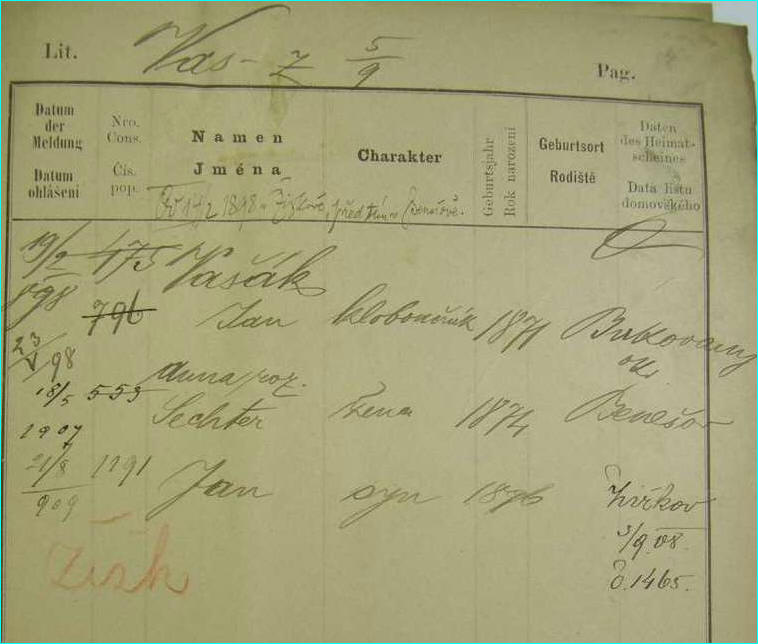 Lit. Vas - Z 5/9 Pag.
Datum der Meldung
Datum ohlášení
Nro. Cons.
Čís. pop.
Namen
Jména
Charakter
Geburtsjahr
Rok narození
Geburtsort
Rodiště
Daten des Heimat-scheines
Data listu domovského
1898 v Žižkově, před tím v Benešově.
19/2 898 475 Vašák
796 Jan kloboučník 1871 Bukovany
23/V 98 ok.
Anna roz.
18/5 1907 553 Sechter žena 1874 Benešov
21/8 909 1191 Jan syn 1896 Žižkov
3/9 08.
č. 1465.
Žižk